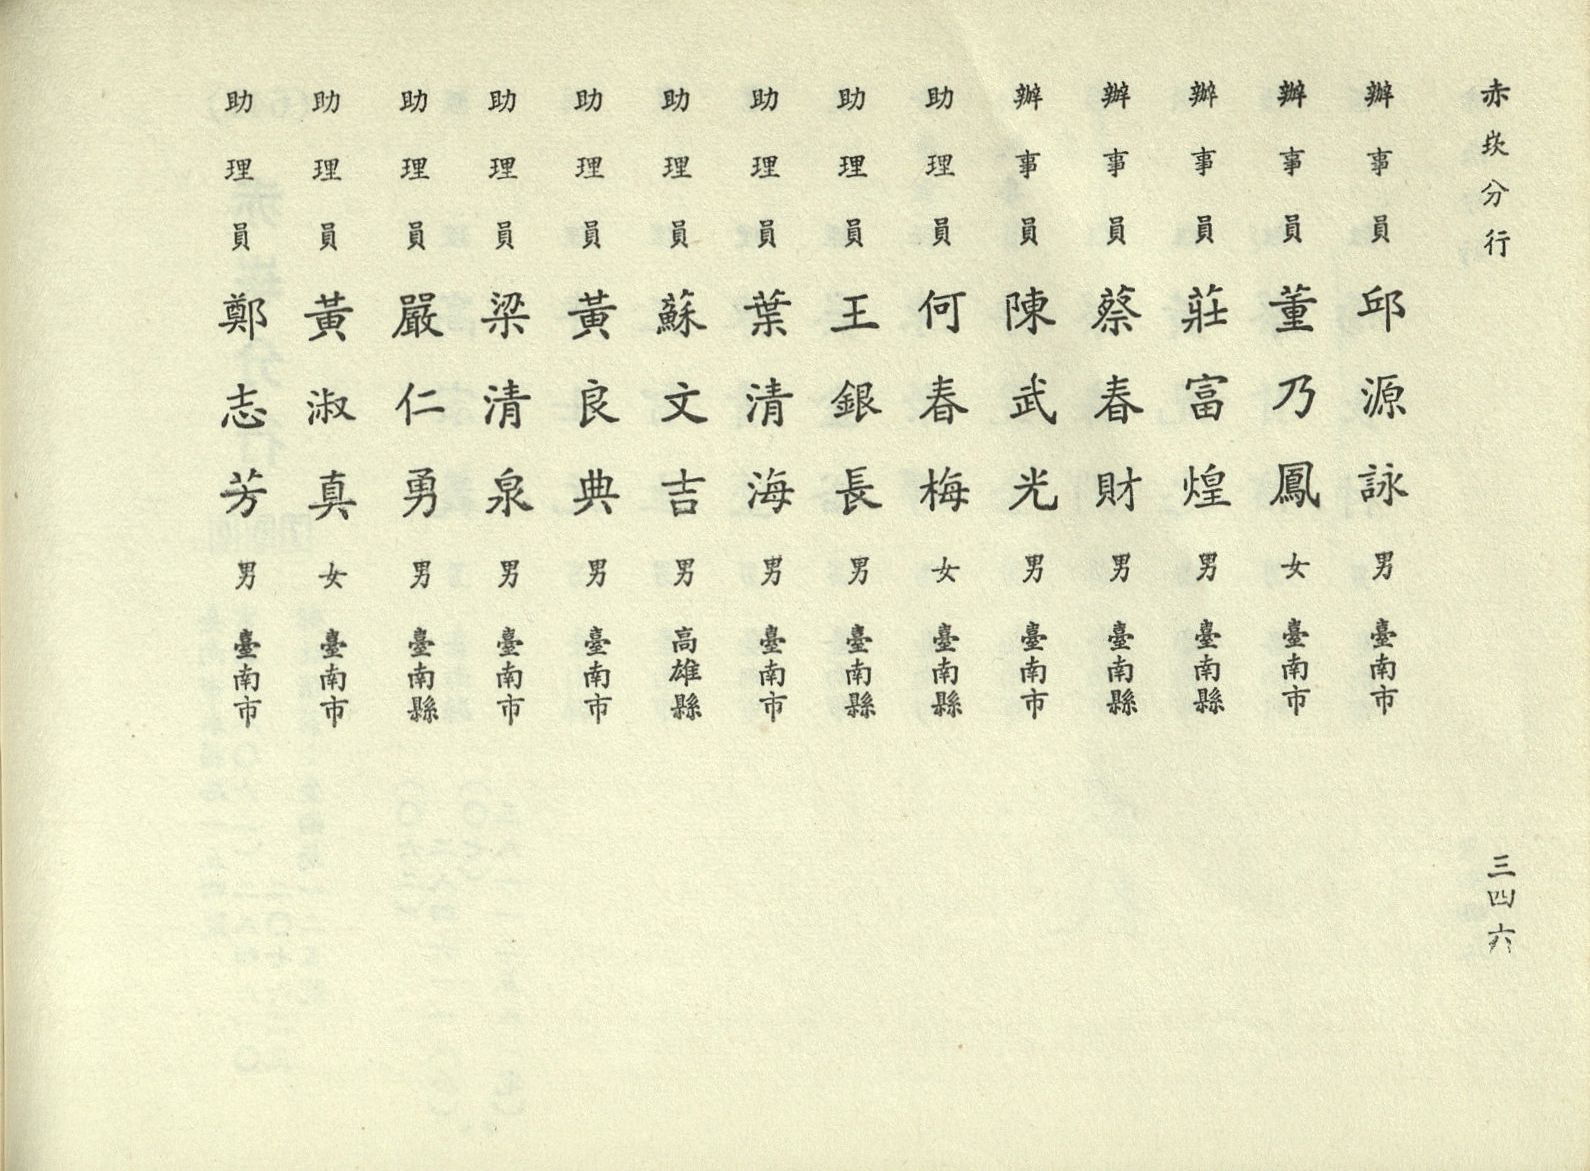 赤崁分行
三四六
辦事員 邱源詠 男 臺南市
辦事員 董乃鳳 女 臺南市
辦事員 莊富煌 男 臺南縣
辦事員 蔡春財 男 臺南縣
辦事員 陳武光 男 臺南市
助理員 何春梅 女 臺南縣
助理員 王銀長 男 臺南縣
助理員 葉清海 男 臺南市
助理員 蘇文吉 男 高雄縣
助理員 黃良典 男 臺南市
助理員 梁清泉 男 臺南市
助理員 嚴仁勇 男 臺南縣
助理員 黃淑真 女 臺南市
助理員 鄭志芳 男 臺南市